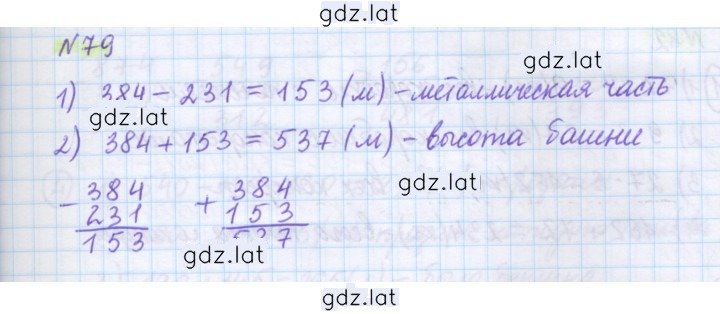 gdz.lat
N 79
1) 384 - 231 = 153 (м) - металлическая часть
gdz.lat
2) 384 + 153 = 537 (м) - высота башни
- 384
231
153
+ 384
153
537
gdz.lat
gdz.lat
gdz.lat